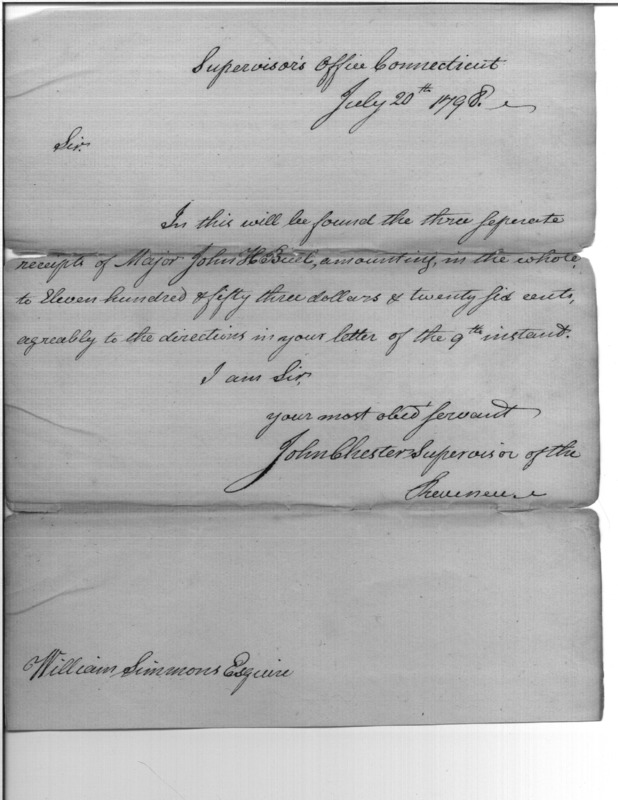 Supervisor's Office Connecticut
July 20th 1798.
Sir.
In this will be found the three seperate
receipts of Major John H Buel, amounting, in the whole,
to Eleven hundred & fifty three dollars & twenty six cents,
agreably to the directions in your letter of the 9th instant.
I am Sir,
your most obedt servant
John Chester Supervisor of the
Revenue.
William Simmons Esquire